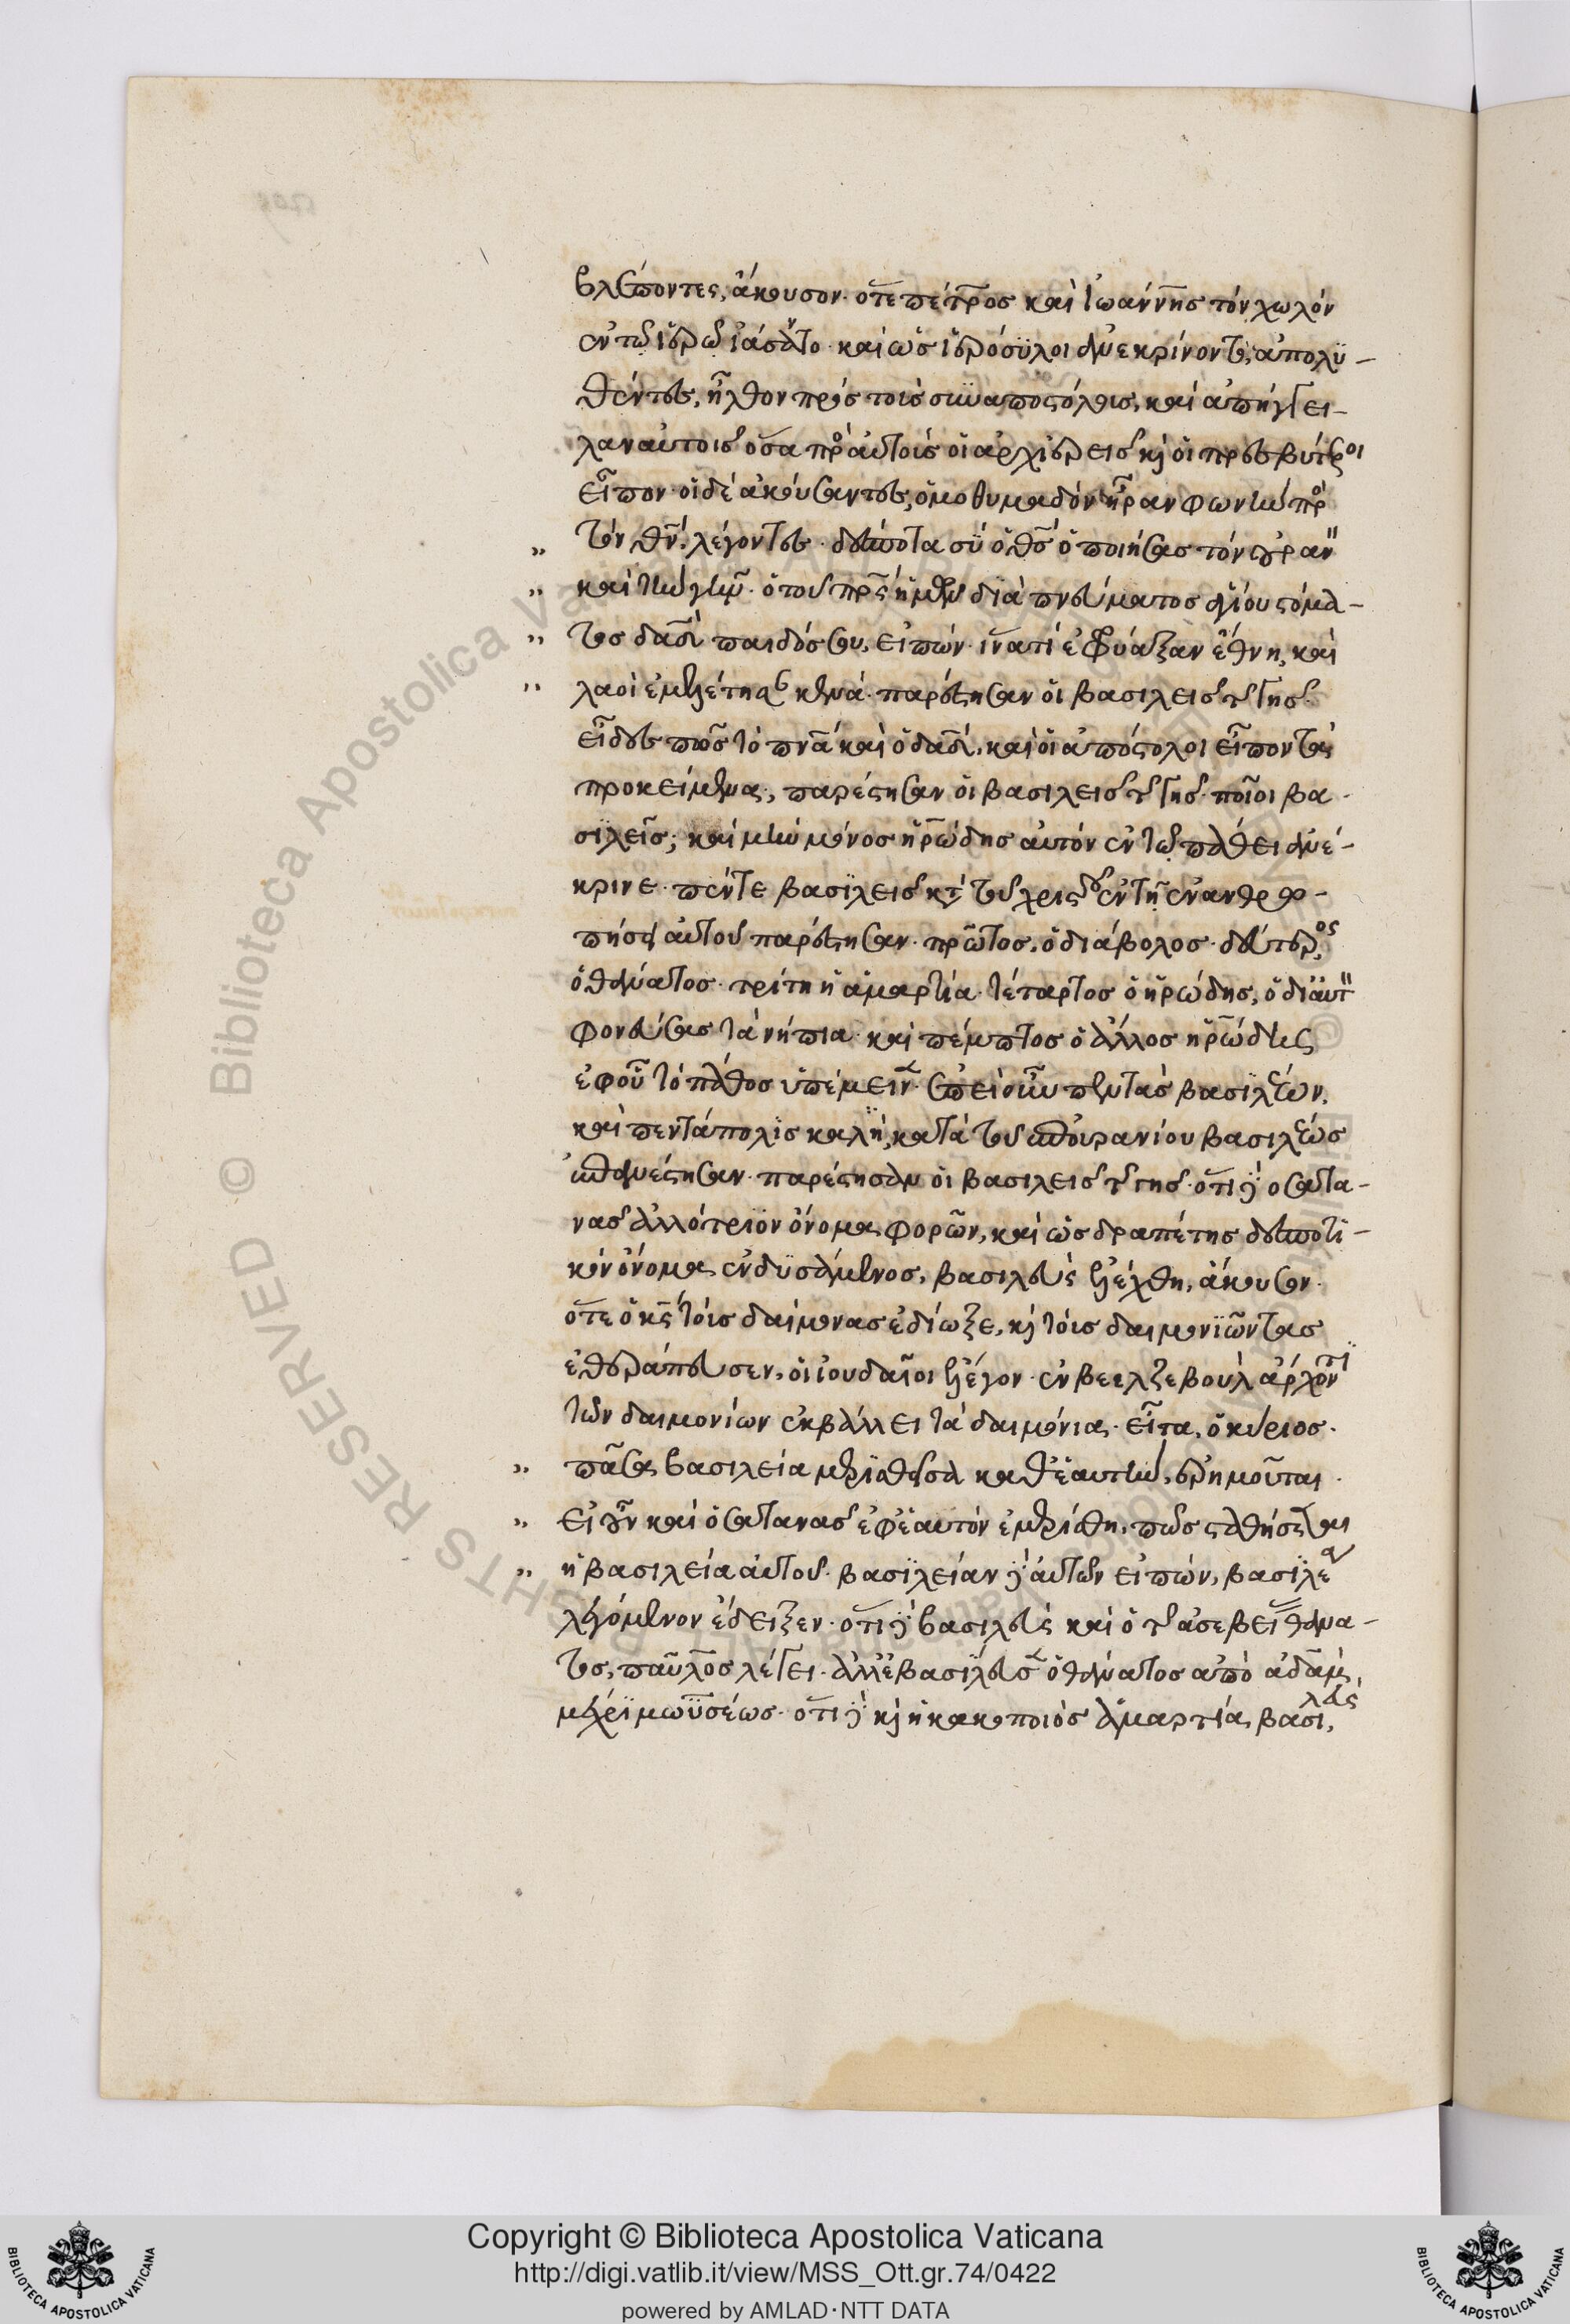 βλέποντες, ἄκουσον· ὅτε πέτρος καὶ ἰωάννης τὸν χωλὸν
ἐν τῶ ἱερῶ ἰάσαντο· καὶ ὡς ἱερόσυλοι ἀνεκρίνοντο, ἀπολυ-
θέντες, ἦλθον πρὸς τοὺς συναποστόλους, καὶ ἀπήγγει-
λαν αὐτοῖς ὅσα πρὸ αὐτοὺς οἱ ἀρχιερεῖς κ οἱ πρεσβύτεροι
εἶπον· οἱ δὲ ἀκούσαντες, ὁμοθυμαδὸν ἦραν φωνὴν πρὸ
„ τὸν θν, λέγοντες· δέσποτα σὺ ὁ θς ὁ ποιήσας τὸν οὐραν
„ καὶ τὴν γῆν· ὁ τοῦ πρς ἡμῶν διὰ πνεύματος ἁγίου στόμα-
„ τος δαδ παιδός σου, εἰπών· ἱνατί ἐφρύαξαν ἔθνη, καὶ
„ λαοὶ ἐμελέτησαν κενά· παρέστησαν οἱ βασιλεῖς τῆς γῆς·
εἶδες πῶς τὸ πνα καὶ ὁ δαδ, καὶ οἱ ἀπόστολοι εἶπον τὰ
προκείμενα, παρέστησαν οἱ βασιλεῖς τῆς γῆς· ποῖοι βα-
σιλεῖς; καὶ μὴν μόνος ἡρώδης αὐτὸν ἐν τῶ πάθει ἀνέ-
κρινε· πέντε βασιλεῖς κατὰ τοῦ χριστοῦ ἐν τῆ ἐνανθρω-
πήσει αὐτοῦ παρέστησαν· πρῶτος, ὁ διάβολος· δεύτερος
ὁ θάνατος· τρίτη ἡ ἁμαρτία· τέταρτος ὁ ἡρώδης, ὁ δι' αὐτ
φονεύσας τὰ νήπια· καὶ πέμπτος ὁ ἄλλος ἡρώδης
ἐφ' οὗ τὸ πάθος ὑπέμεινε· ἐπεὶ οὖν πεντὰς βασιλέων,
καὶ πεντάπολις καλὴ, κατὰ τοῦ ἐπουρανίου βασιλέως
ἐπανέστησαν· παρέστησαν οἱ βασιλεῖς τῆς γῆς· ὅτι γὰρ ὁ σατα-
νᾶς ἀλλότριον ὄνομα φορῶν, καὶ ὡς δραπέτης δεσποτι-
κὸν ὄνομα ἐνδυσάμενος, βασιλεὺς ἐλέχθη, ἄκουσον·
ὅτε ὁ κς τοὺς δαίμονας ἐδίωξε, κ τοὺς δαιμονιῶντας
ἐθεράπευσεν, οἱ ἰουδαῖοι ἔλεγον· ἐν βεελζεβοὺλ ἄρχοντι
τῶν δαιμονίων ἐκβάλλει τὰ δαιμόνια· εἶτα, ὁ κύριος·
„ πᾶσα βασιλεία μερισθεῖσα καθ' ἑαυτὴν, ἐρημοῦται·
„ εἰ οὖν καὶ ὁ σατανᾶς ἐφ' ἑαυτὸν ἐμερίσθη, πῶς σταθήσεται
„ ἡ βασιλεία αὐτοῦ· βασιλείαν γὰρ αὐτῶν εἰπών, βασιλέα
λεγόμενον ἔδειξεν· ὅτι γὰρ βασιλεὺς καὶ ὁ τῆς ἀσεβείας θάνα-
τος, παῦλος λέγει· ἀλλ' ἐβασίλευσεν ὁ θάνατος ἀπὸ ἀδὰμ,
μέχρι μωϋσέως· ὅτι γὰρ κ ἡ κακοποιὸς ἁμαρτία, βασιλεὺς,
Copyright © Biblioteca Apostolica Vaticana
http://digi.vatlib.it/view/MSS_Ott.gr.74/0422
powered by AMLAD·NTT DATA